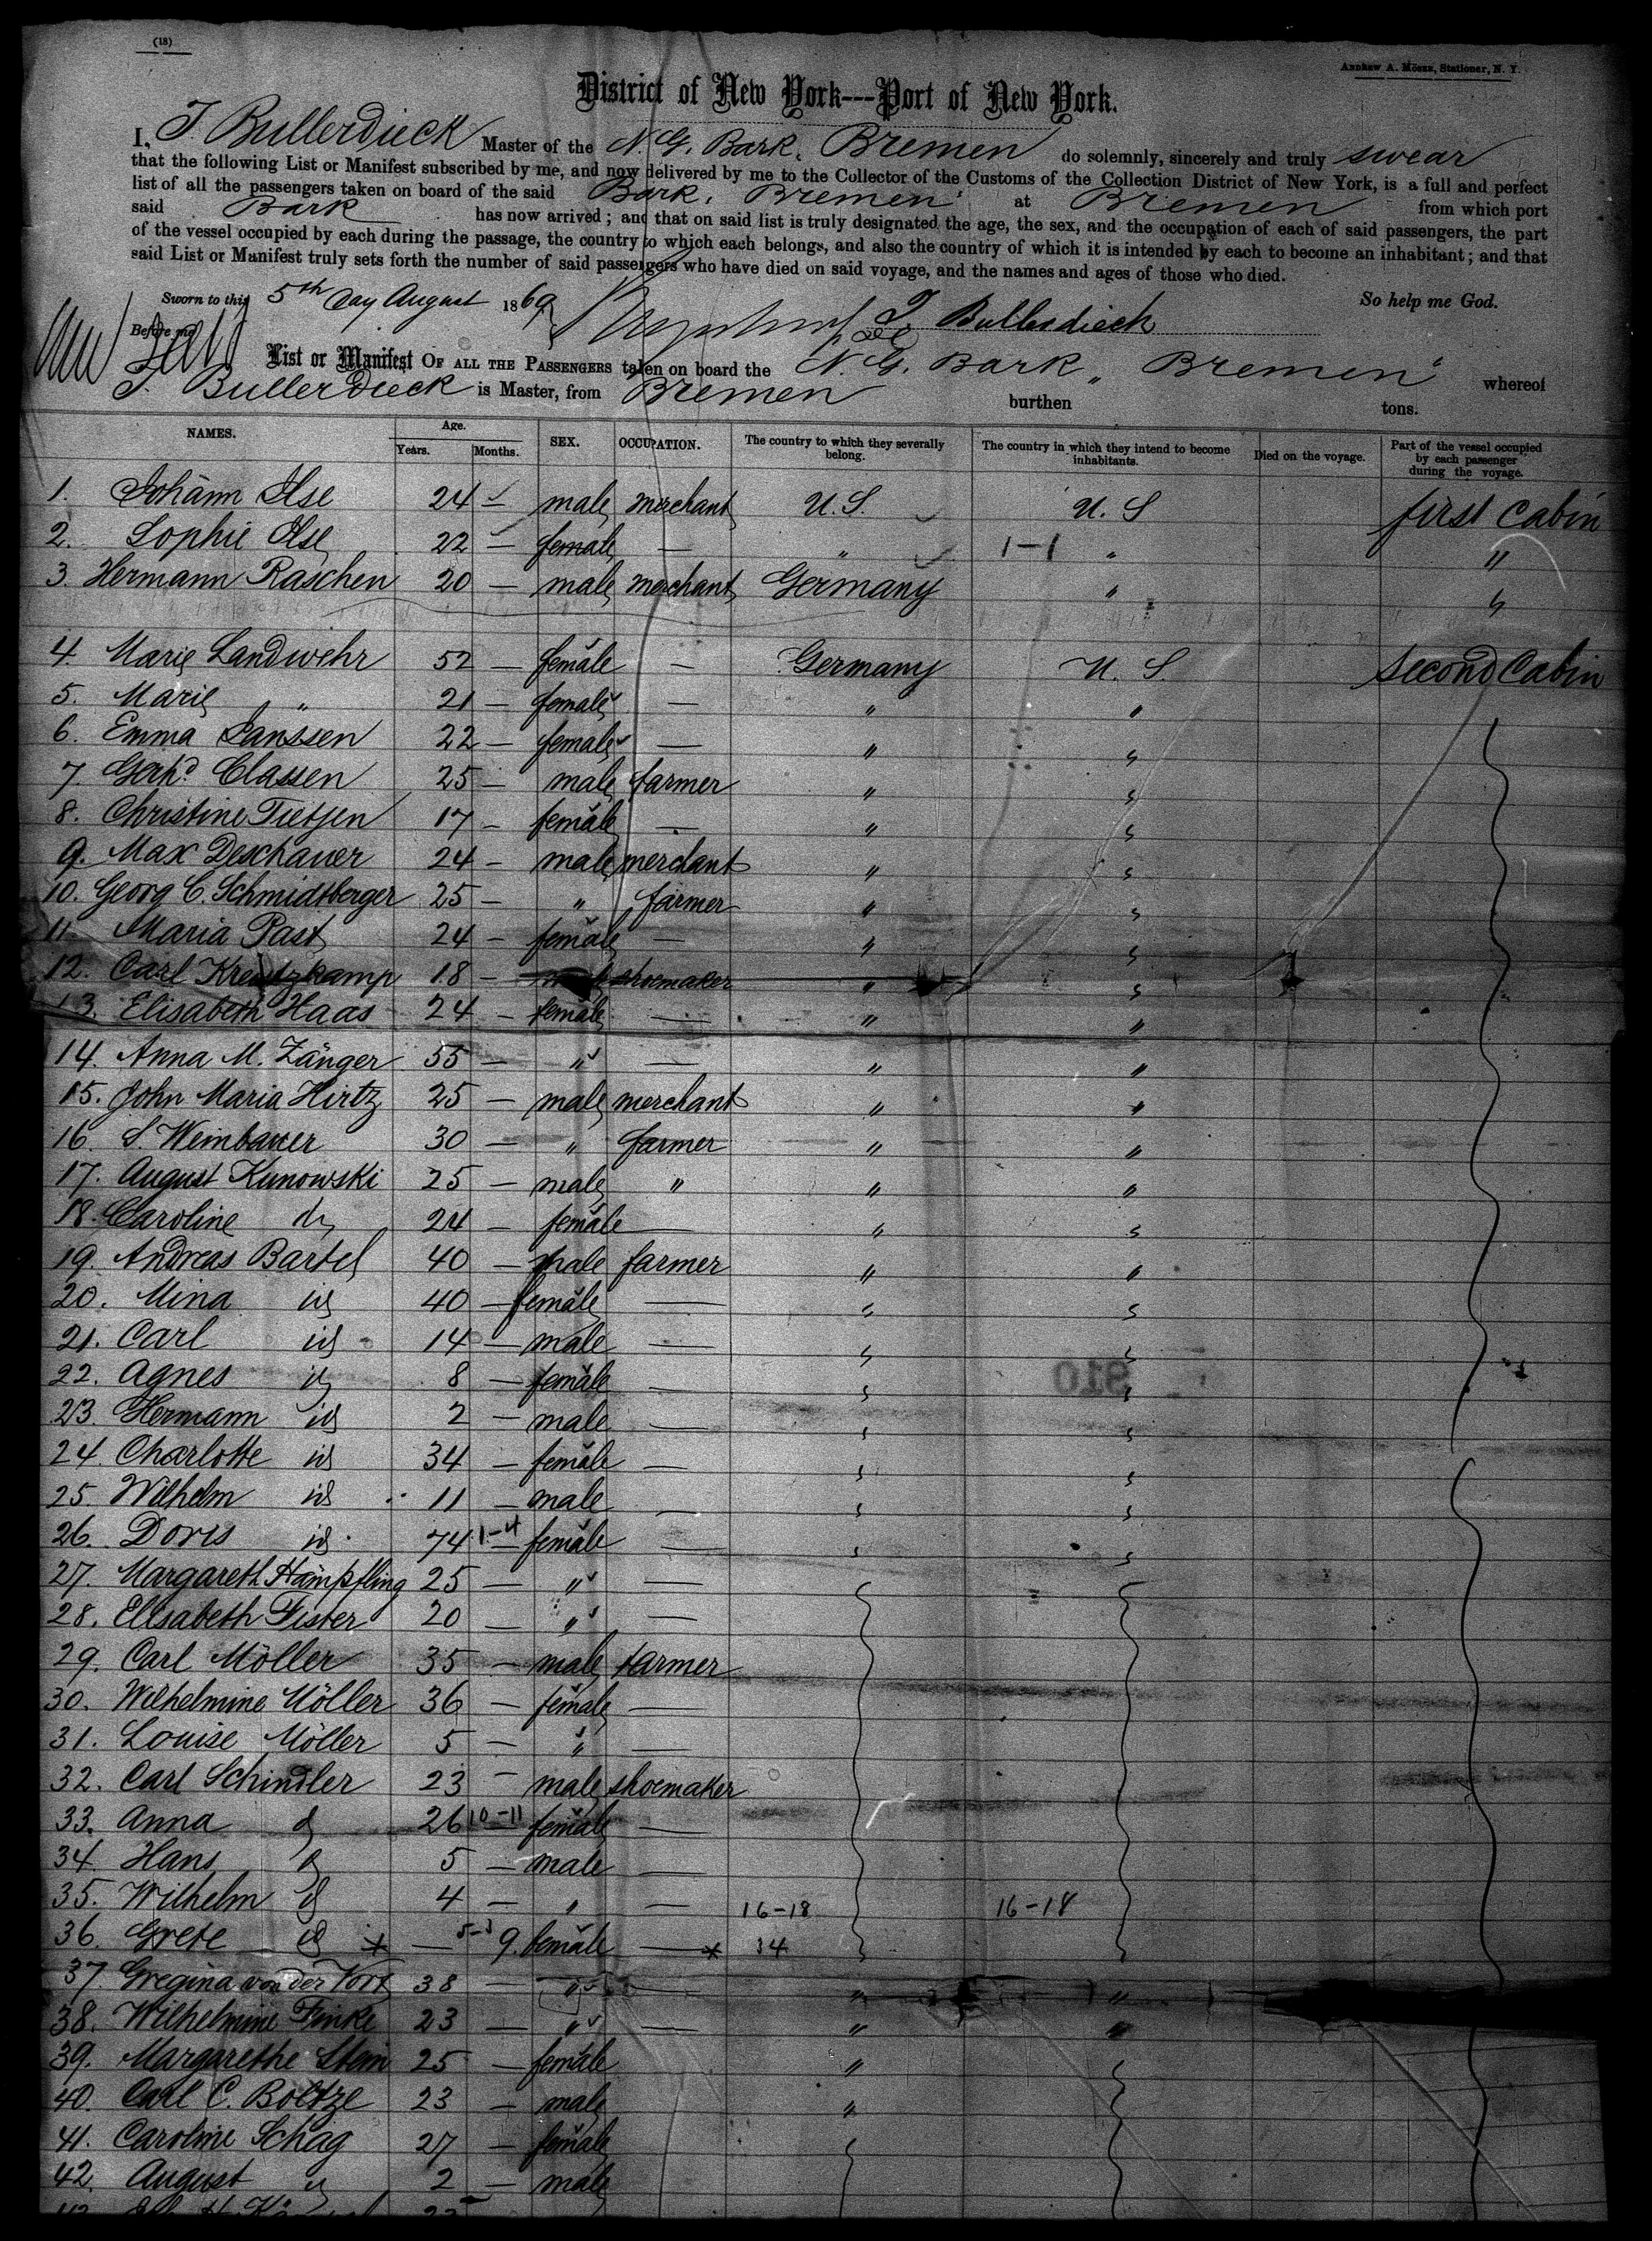 (18)
Andrew A. Möszn, Stationer, N. Y.
District of New York---Port of New York.
I, J Bullerdieck Master of the N. G. Bark. Bremen do solemnly, sincerely and truly swear
that the following List or Manifest subscribed by me, and now delivered by me to the Collector of the Customs of the Collection District of New York, is a full and perfect
list of all the passengers taken on board of the said Bark. Bremen at Bremen from which port
said Bark has now arrived; and that on said list is truly designated the age, the sex, and the occupation of each of said passengers, the part
of the vessel occupied by each during the passage, the country to which each belongs, and also the country of which it is intended by each to become an inhabitant; and that
said List or Manifest truly sets forth the number of said passengers who have died on said voyage, and the names and ages of those who died.
Sworn to this 5th Day August 1869 So help me God.
J. Bullerdieck
Before me
List or Manifest OF ALL THE PASSENGERS taken on board the N. G. Bark „ Bremen" whereof
J. Bullerdieck is Master, from Bremen burthen tons.
NAMES. Age. Years. Months. SEX. OCCUPATION. The country to which they severally belong. The country in which they intend to become inhabitants. Died on the voyage. Part of the vessel occupied by each passenger during the voyage.
1. Johann Ilse 24 — male merchant U. S. U. S first Cabin
2. Sophie Ilse 22 — female — " 1-1 " "
3. Hermann Raschen 20 — male merchant Germany " "
4. Marie Landwehr 52 — female — Germany U. S. second Cabin
5. Marie " 21 — female — " "
6. Emma Janssen 22 — female — " "
7. Gerhd. Classen 25 — male farmer " "
8. Christine Tietjen 17 — female — " "
9. Max Deschauer 24 — male merchant " "
10. Georg C. Schmidtberger 25 — " farmer " "
11. Maria Past 24 — female — " "
12. Carl Kreutzkamp 18 — male shoemaker " "
13. Elisabeth Haas 24 — female — " "
14. Anna M. Zänger 55 — " — " "
15. John Maria Hirtz 25 — male merchant " "
16. S. Weinbauer 30 — " farmer " "
17. August Kunowski 25 — male " " "
18. Caroline do 24 — female — " "
19. Andreas Bartel 40 — male farmer " "
20. Mina id 40 — female — " "
21. Carl id 14 — male — " "
22. Agnes id 8 — female — " "
23 Hermann id 2 — male — " "
24. Charlotte id 34 — female — " "
25. Wilhelm id 11 — male — " "
26. Doris id. 74 1-4 — female — " "
27. Margareth Hämpfling 25 — " —
28. Elisabeth Fister 20 — " —
29. Carl Möller 35 — male farmer
30. Wilhelmine Möller 36 — female —
31. Louise Möller 5 — " —
32. Carl Schindler 23 — male shoemaker
33. Anna id 26 10-11 — female —
34. Hans id 5 — male —
35. Wilhelm id 4 — " — 16-18 16-18
36. Grete id * — 5-3 9. female — * 34
37. Gregina von der Vort 38 — " — " "
38. Wilhelmine Finke 23 — " — " "
39. Margarethe Stein 25 — female "
40. Carl C. Boltze 23 — male "
41. Caroline Schag 27 — female
42. August id 2 — male
910